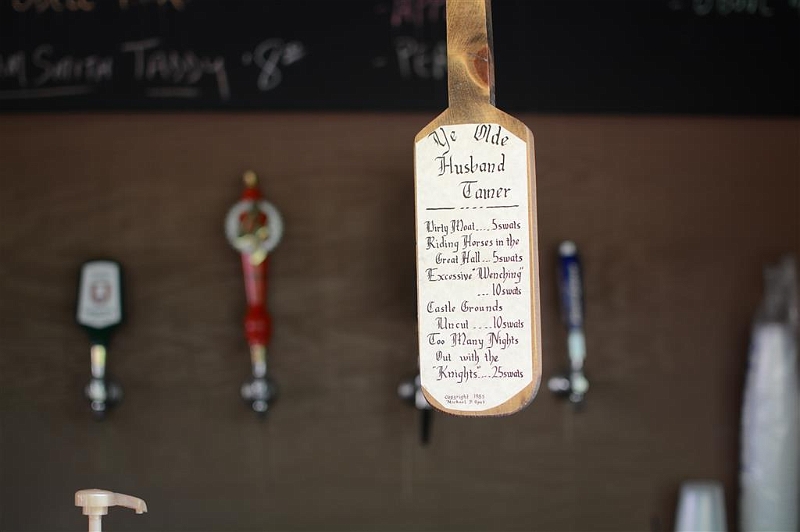 Smith Tassy '8⁰⁰
Ye Olde
Husband
Tamer
Dirty Moat.... 5swats
Riding Horses in the
Great Hall... 5swats
Excessive "Wenching"
... 10swats
Castle Grounds
Uncut .... 10swats
Too Many Nights
Out with the
"Knights"... 25swats
Copyright 1985